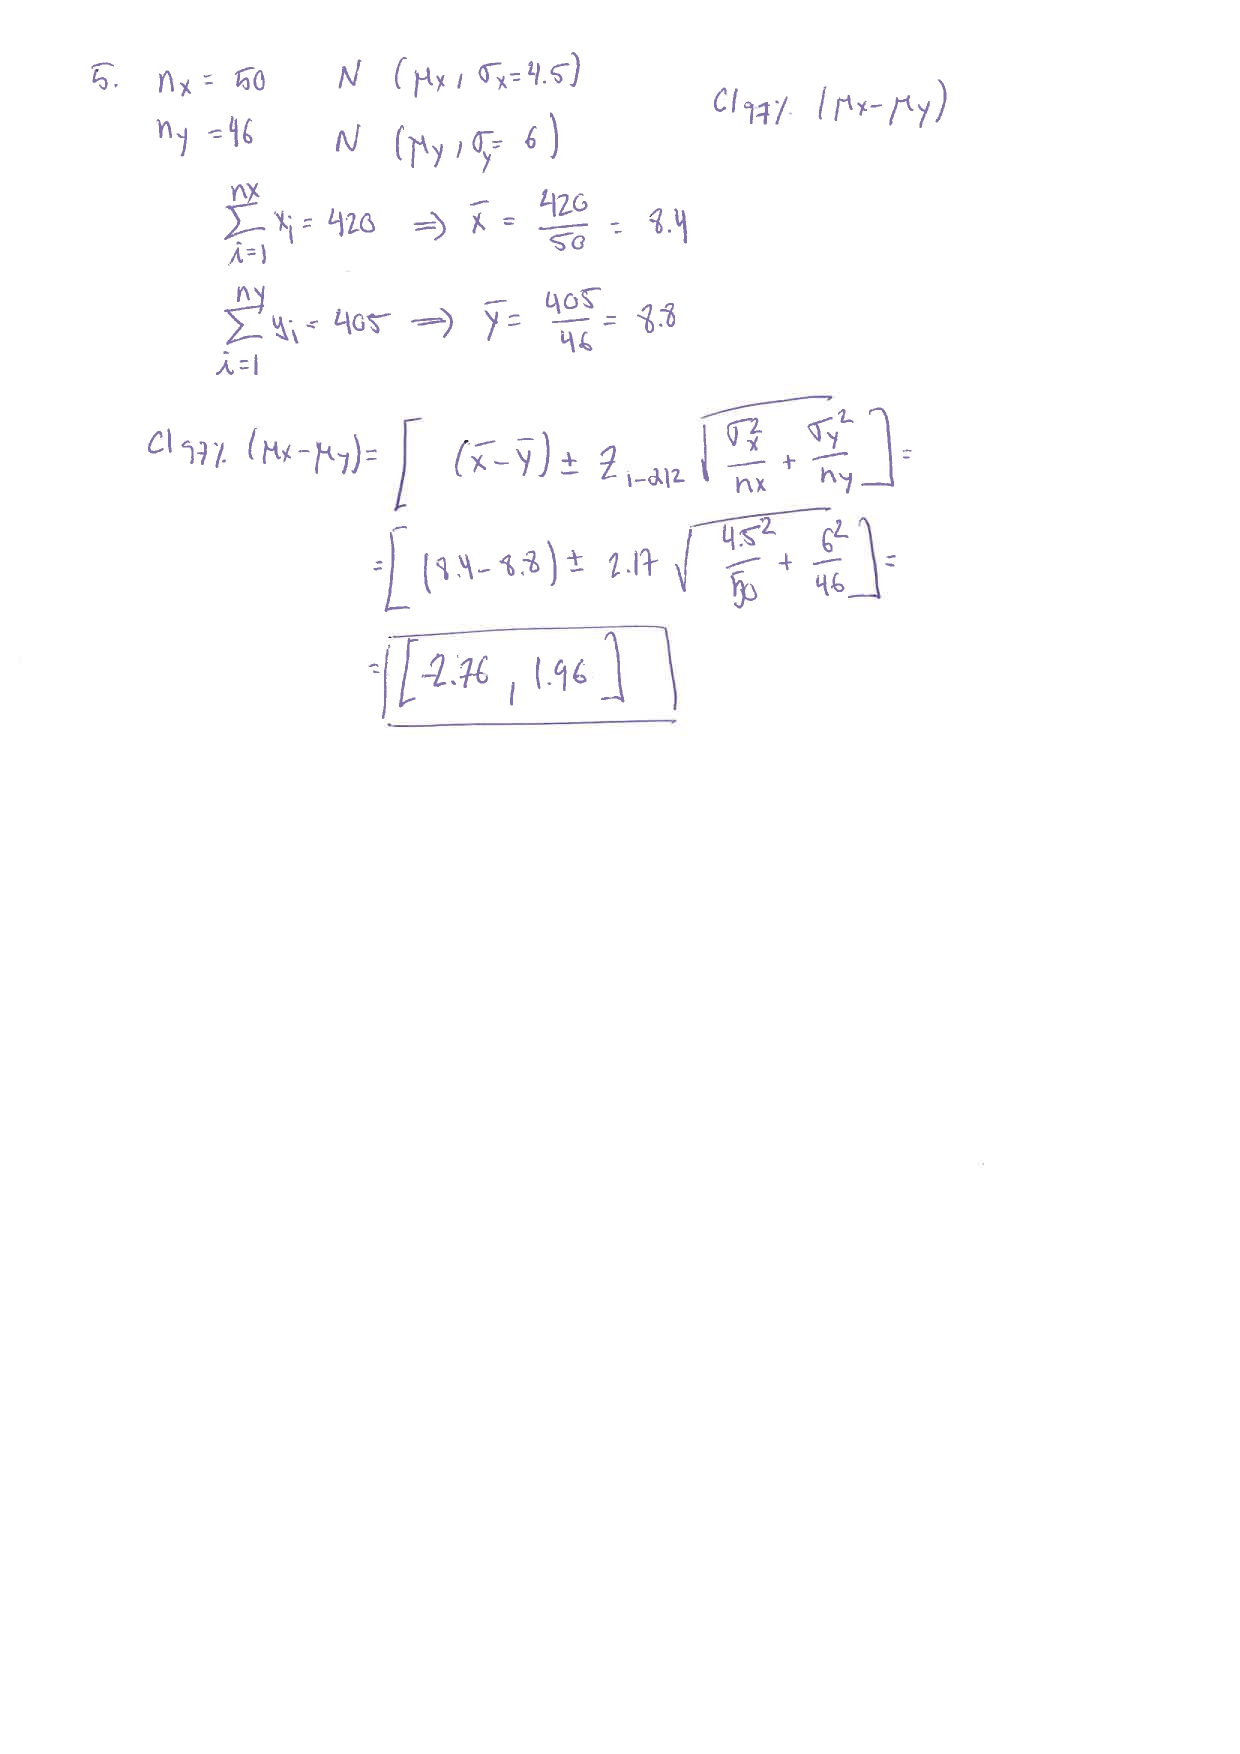 5. nx = 50 N (μx, σx=4.5) CI97% (μx-μy)
ny = 46 N (μy, σy= 6)
nx
∑ xi = 420 ⇒ x̄ = 420/50 = 8.4
i=1
ny
∑ yi = 405 ⇒ ȳ = 405/46 = 8.8
i=1
CI97% (μx-μy) = [ (x̄-ȳ) ± Z1-α/2 √(σx²/nx + σy²/ny) ] =
= [ (8.4-8.8) ± 2.17 √(4.5²/50 + 6²/46) ] =
= [-2.76, 1.96]